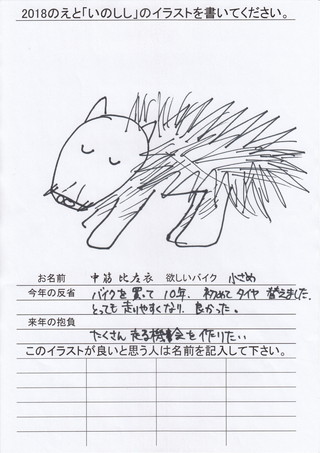 2018のえと「いのしし」のイラストを書いてください。
お名前 中筋 比左衣 欲しいバイク 小さめ
今年の反省 バイクを買って10年. 初めてタイヤ替えました.
とっても走りやすくなり 良かった。
来年の抱負
たくさん走る機会を作りたい
このイラストが良いと思う人は名前を記入して下さい。